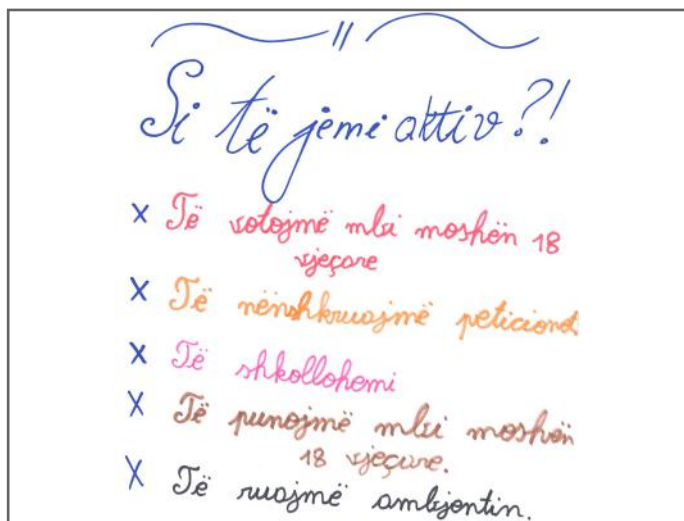 Si të jemi aktiv?!
x Të votojmë mbi moshën 18
vjeçare
x Të nënshkruajmë peticionet
x Të shkollohemi
x Të punojmë mbi moshën
18 vjeçare.
x Të ruajmë ambjentin.